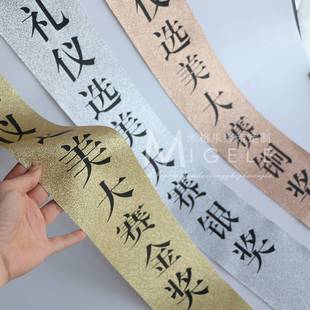 仪选美大赛金奖
礼仪选美大赛银奖
仪选美大赛铜奖
MIGELE